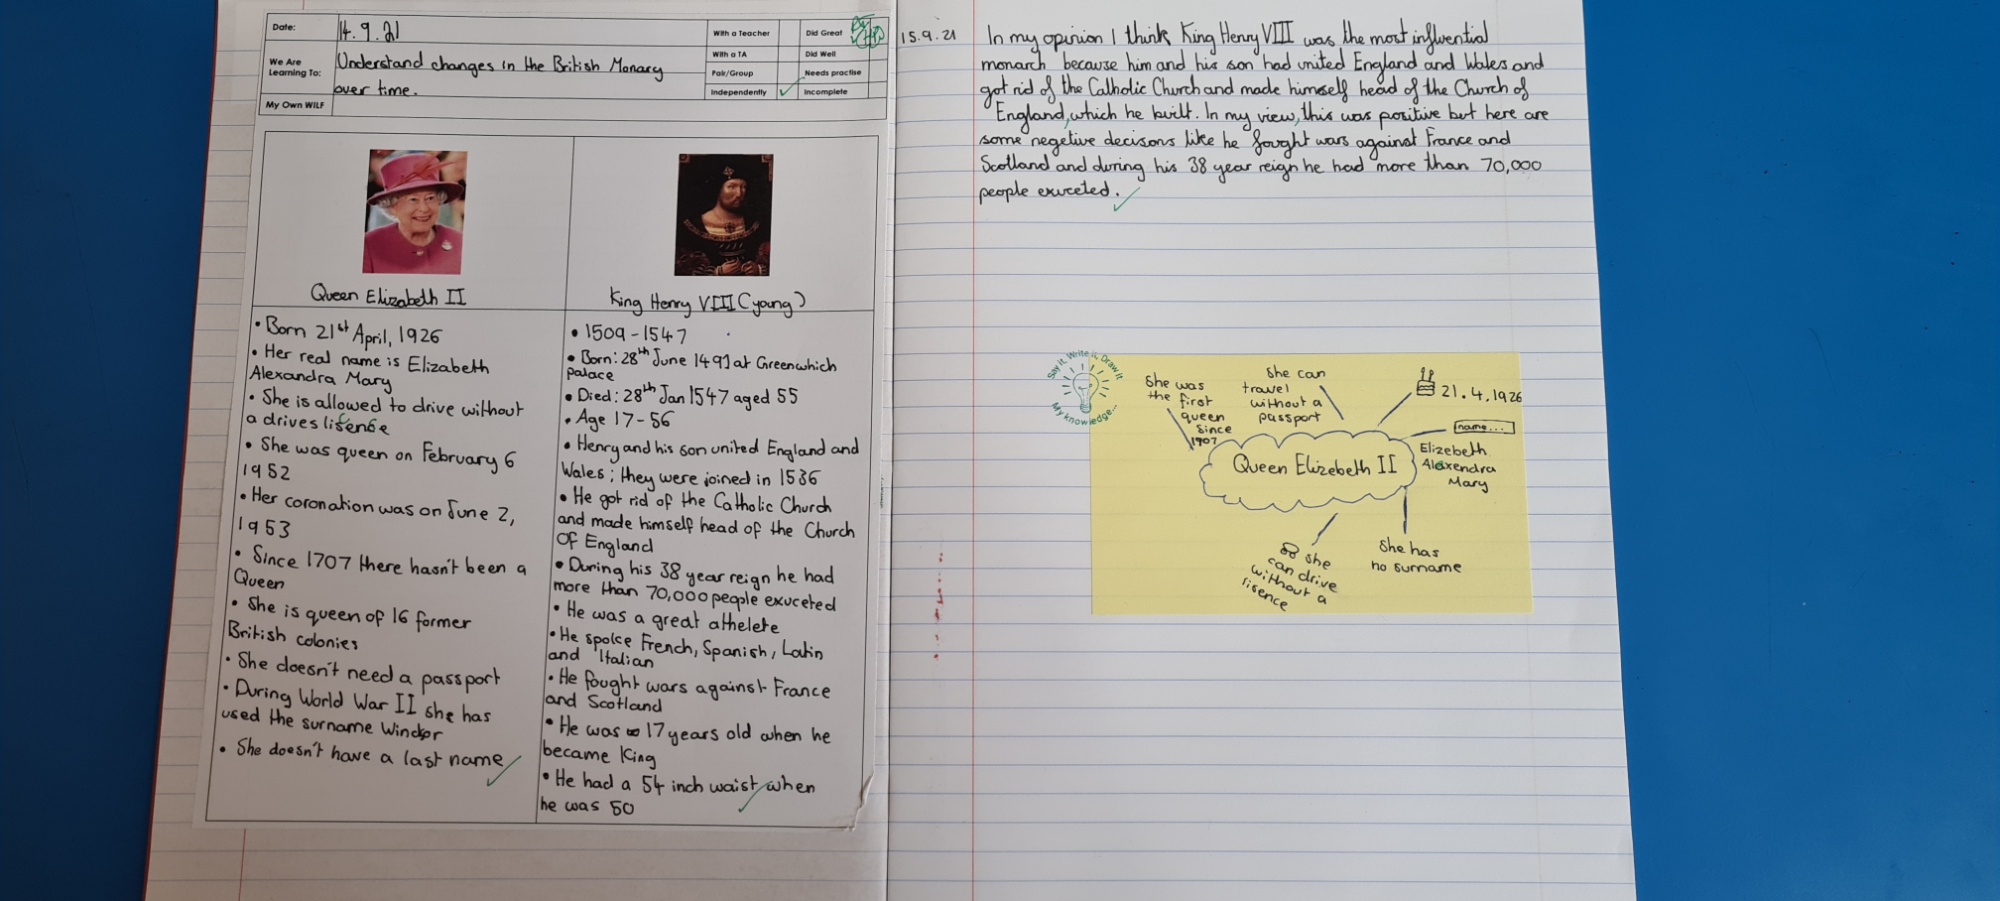 Date:
14.9.21
We Are
Learning To:
Understand changes in the British Monary
over time.
My Own WILF
With a Teacher
Did Great
With a TA
Did Well
Pair/Group
Needs practise
Independently ✓
Incomplete
Queen Elizabeth II
• Born 21st April, 1926
• Her real name is Elizabeth
Alexandra Mary
• She is allowed to drive without
a drives lisense
• She was queen on February 6
1952
• Her coronation was on June 2,
1953
• Since 1707 there hasn't been a
Queen
• She is queen of 16 former
British colonies
• She doesn't need a passport
• During World War II she has
used the surname Windsor
• She doesn't have a last name
King Henry VIII (young)
• 1509-1547
• Born: 28th June 1491 at Greenwhich
palace
• Died: 28th Jan 1547 aged 55
• Age 17-56
• Henry and his son united England and
Wales; they were joined in 1536
• He got rid of the Catholic Church
and made himself head of the Church
Of England
• During his 38 year reign he had
more than 70,000 people exuceted
• He was a great athelete
• He spoke French, Spanish, Latin
and Italian
• He fought wars against France
and Scotland
• He was 17 years old when he
became King
• He had a 54 inch waist when
he was 50
15.9.21
In my opinion I think King Henry VIII was the most influential
monarch because him and his son had united England and Wales and
got rid of the Catholic Church and made himself head of the Church of
England, which he built. In my view, this was positive but here are
some negetive decisons like he fought wars against France and
Scotland and during his 38 year reign he had more than 70,000
people exuceted.
Say it, Write it, Draw it
My knowledge...
She was
the first
queen
since
1707
She can
travel
without a
passport
21.4.1926
name...
Elizebeth
Alexendra
Mary
Queen Elizebeth II
She has
no surname
she
can drive
without a
lisence